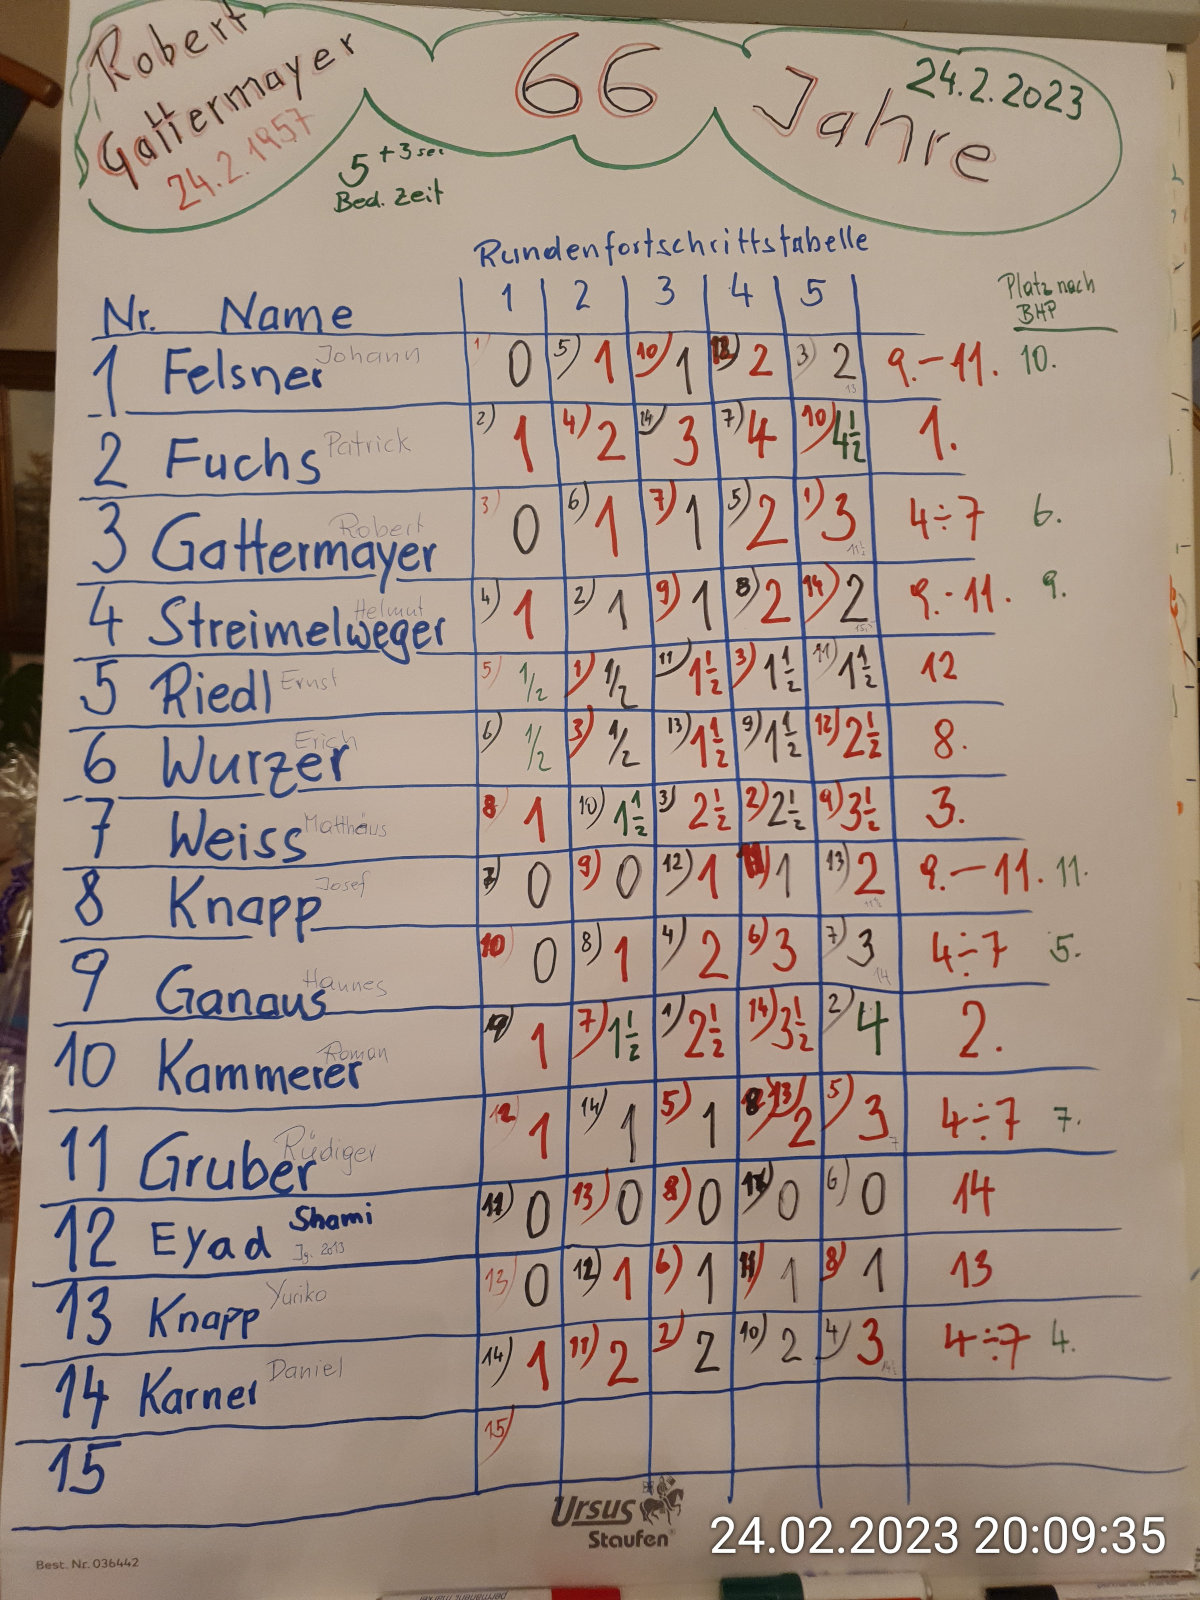 Robert
Gattermayer
24.2.1957
66 Jahre
24.2.2023
5 +3 sec
Bed. Zeit
Rundenfortschrittstabelle
Nr. Name 1 2 3 4 5 Platz nach BHP
1 Felsner Johann 1) 0 5) 1 10) 1 12) 2 3) 2 13 9.-11. 10.
2 Fuchs Patrick 2) 1 4) 2 14) 3 7) 4 10) 4 1/2 1.
3 Gattermayer Robert 3) 0 6) 1 7) 1 5) 2 1) 3 11 1/2 4÷7 6.
4 Streimelweger Helmut 4) 1 2) 1 9) 1 8) 2 14) 2 9.-11. 9.
5 Riedl Ernst 5) 1/2 1) 1/2 11) 1 1/2 3) 1 1/2 11) 1 1/2 12
6 Wurzer Erich 6) 1/2 3) 1/2 13) 1 1/2 9) 1 1/2 12) 2 1/2 8.
7 Weiss Matthäus 8) 1 10) 1 1/2 3) 2 1/2 2) 2 1/2 9) 3 1/2 3.
8 Knapp Josef 7) 0 9) 0 12) 1 11) 1 13) 2 11 1/2 9.-11. 11.
9 Ganaus Hannes 10) 0 8) 1 4) 2 6) 3 7) 3 14 4÷7 5.
10 Kammerer Roman 9) 1 7) 1 1/2 1) 2 1/2 14) 3 1/2 2) 4 2.
11 Gruber Rüdiger 12) 1 14) 1 5) 1 13) 2 5) 3 7 4÷7 7.
12 Eyad Shami Jg. 2013 11) 0 13) 0 8) 0 0 6) 0 14
13 Knapp Yuriko 13) 0 12) 1 6) 1 11) 1 8) 1 13
14 Karner Daniel 14) 1 11) 2 2) 2 10) 2 4) 3 14 1/2 4÷7 4.
15 15)
Ursus
Staufen®
Best. Nr. 036442
24.02.2023 20:09:35